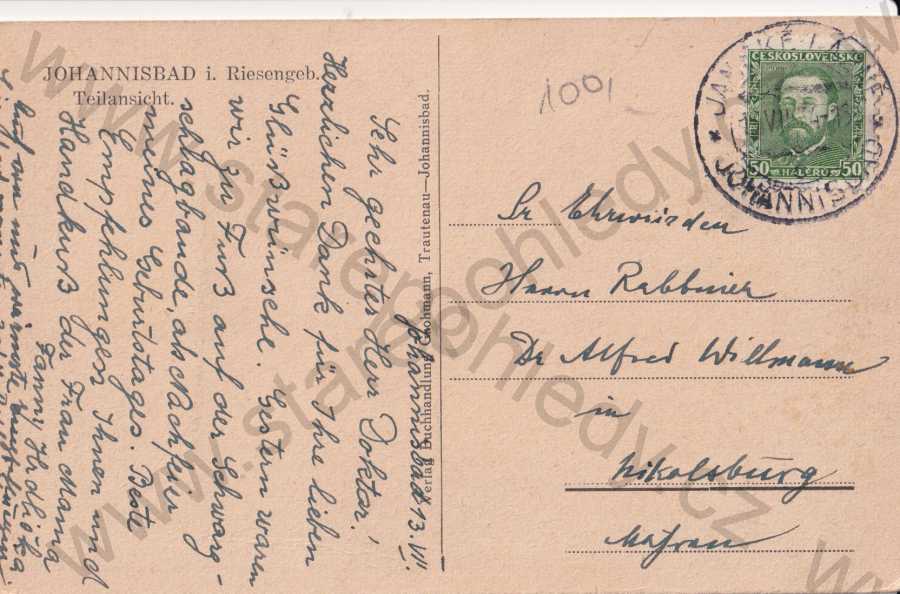 JOHANNISBAD i. Riesengeb.
Teilansicht.
Johannisbad 13. VII.
Sehr geehrter Herr Doktor!
Herzlichen Dank für Ihre lieben
Glückwünsche. Gestern waren
wir zu Fuß auf der Schwarz-
schlagbaude, als Nachfeier
meines Geburtstages. Beste
Empfehlungen Ihnen und
Handkuß der Frau Mama
Fanny
Verlag Buchhandlung Grohmann, Trautenau—Johannisbad.
1001
ČESKOSLOVENSKO
50 HALÉŘŮ 50
JANSKÉ LÁZNĚ
JOHANNISBAD
Sr Ehrwürden
Herrn Rabbiner
Dr Alfred Willmann
in
Nikolsburg
Mähren
www.starepohledy.cz